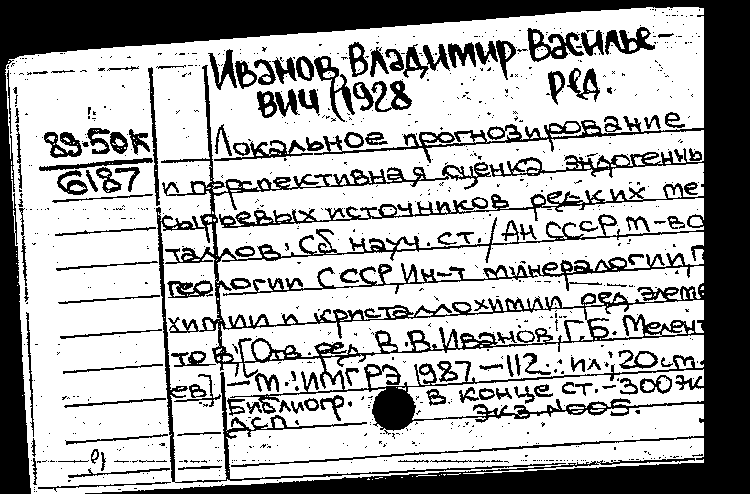 Иванов, Владимир Василье-
вич (1928 ред.
89-50к
6187
Локальное прогнозирование
и перспективная оценка эндогенны
сырьевых источников редких ме-
таллов: Сб науч. ст. / Ан СССР, М-во
геологии СССР, Ин-т минералогии, г
химии и кристаллохимии ред. элеме
тов; [Отв. ред. В.В. Иванов, Г.Б. Мелент
ев]. - М.: ИМГРЭ, 1987. - 112 : ил.; 20 см.
Библиогр. в конце ст. - 300 эк
дсп. экз. №005.